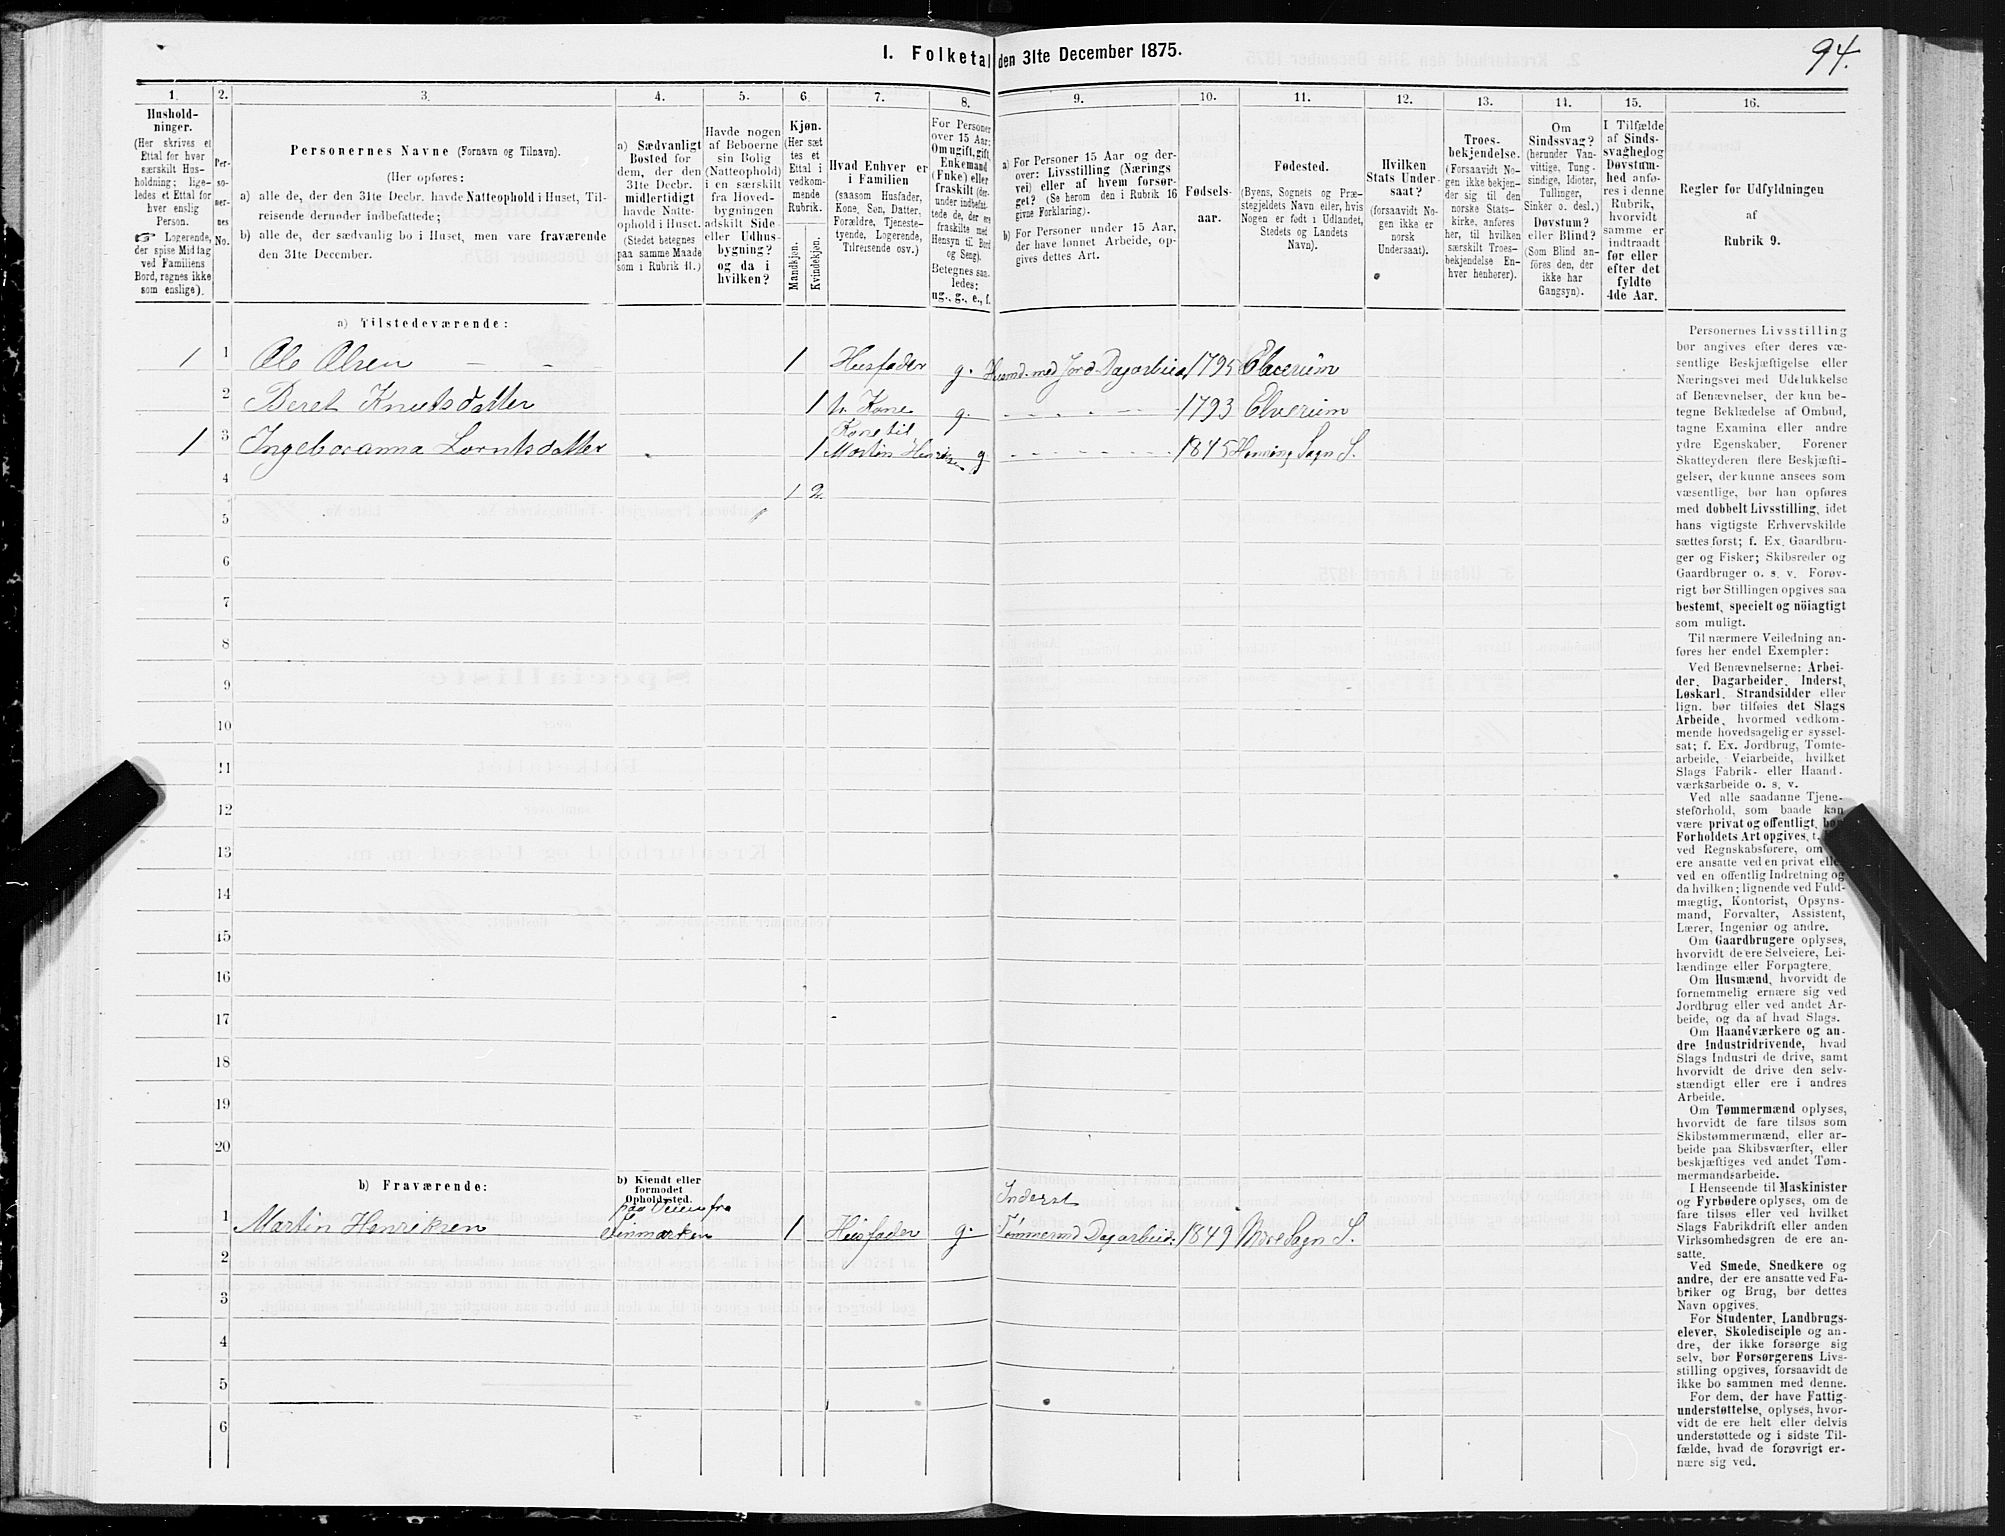 I. Folketal den 31te December 1875.
94.
1.
2.
3.
4.
5.
6.
7.
8.
9.
10.
11.
12.
13.
14.
15.
16.
Hushold-
ninger.
(Her skrives et
Ettal for hver
særskilt Hus-
holdning; lige-
ledes et Ettal for
hver enslig
Person.
☞ Logerende,
der spise Middag
ved Familiens
Bord, regnes ikke
som enslige).
Per-
so-
ner-
nes
No.
Personernes Navne (Fornavn og Tilnavn).
(Her opføres:
a) alle de, der den 31te Decbr. havde Natteophold i Huset, Til-
reisende derunder indbefattede;
b) alle de, der sædvanlig bo i Huset, men vare fraværende
den 31te December.
a) Sædvanligt
Bosted for
dem, der den
31te Decbr.
midlertidigt
havde Natte-
ophold i Huset.
(Stedet betegnes
paa samme Maade
som i Rubrik 11.)
Havde nogen
af Beboerne
sin Bolig
(Natteophold)
i en særskilt
fra Hoved-
bygningen
adskilt Side-
eller Udhus-
bygning?
og da i
hvilken?
Kjøn.
(Her sæt-
tes et
Ettal i
vedkom-
mende
Rubrik.
Mandkjøn.
Kvindekjøn.
Hvad Enhver er
i Familien
(saasom Husfader,
Kone, Søn, Datter,
Forældre, Tjeneste-
tyende, Logerende,
Tilreisende osv.)
For Personer
over 15 Aar:
Om ugift, gift,
Enkemand
(Enke) eller
fraskilt (der-
under indbefat-
tede de, der ere
fraskilte med
Hensyn til Bord
og Seng).
Betegnes saa-
ledes:
ug., g., e., f.
a) For Personer 15 Aar og der-
over: Livsstilling (Nærings-
vei) eller af hvem forsør-
get? (Se herom den i Rubrik 16
givne Forklaring).
b) For Personer under 15 Aar,
der have lønnet Arbeide, op-
gives dettes Art.
Fødsels-
aar.
Fødested.
(Byens, Sognets og Præ-
stegjeldets Navn eller, hvis
Nogen er født i Udlandet,
Stedets og Landets
Navn).
Hvilken
Stats Under-
saat?
(forsaavidt No-
gen ikke er
norsk
Undersaat).
Troes-
bekjendelse.
(Forsaavidt No-
gen ikke bekjen-
der sig til den
norske Stats-
kirke, anføres
her, til hvilken
særskilt Troes-
bekjendelse En-
hver henhører).
Om
Sindssvag?
(herunder Van-
vittige, Tung-
sindige, Idioter,
Tullinger,
Sinker o. desl.)
Døvstum?
eller Blind?
(Som Blind an-
føres den, der
ikke har
Gangsyn).
I Tilfælde
af Sinds-
svaghed og
Døvstum-
hed anfø-
res i denne
Rubrik,
hvorvidt
samme er
indtraadt
før eller
efter det
fyldte
4de Aar.
Regler for Udfyldningen
af
Rubrik 9.
a) Tilstedeværende:
1 1 Ole Olsen 1 Husfader g. Husmd. med Jord Dagarbeid. 1795 Elverum
2 Beret Knutsdatter 1 h. Kone g. 1793 Elverum
1 3 Ingeboranna Lorntsdatter 1 Kone til
Martin Henriksen g 1845 Henning Sogn S.
4 1 2
5
6
7
8
9
10
11
12
13
14
15
16
17
18
19
20
b) Fraværende:
b) Kjendt eller
formodet
Opholdssted.
1 Martin Henriksen paa Veien fra
Finmarken 1 Husfader g. Inderst
Tømmermd Dagarbeid. 1849 Sogn S.
2
3
4
5
6
Personernes Livsstilling
bør angives efter deres væ-
sentlige Beskjæftigelse eller
Næringsvei med Udelukkelse
af Benævnelser, der kun be-
tegne Beklædelse af Ombud,
tagne Examina eller andre
ydre Egenskaber. Forener
Skatteyderen flere Beskjæfti-
gelser, der kunne ansees som
væsentlige, bør han opføres
med dobbelt Livsstilling, idet
hans vigtigste Erhvervskilde
sættes først; f. Ex. Gaardbru-
ger og Fisker; Skibsreder og
Gaardbruger o. s. v. Forøv-
rigt bør Stillingen opgives saa
bestemt, specielt og nöiagtigt
som muligt.
Til nærmere Veiledning an-
føres her endel Exempler:
Ved Benævnelserne: Arbei-
der, Dagarbeider, Inderst,
Løskarl, Strandsidder eller
lign. bør tilføies det Slags
Arbeide, hvormed vedkom-
mende hovedsagelig er syssel-
sat; f. Ex. Jordbrug, Tomte-
arbeide, Veiarbeide, hvilket
Slags Fabrik- eller Haand-
værksarbeide o. s. v.
Ved alle saadanne Tjene-
steforhold, som baade kan
være privat og offentligt, bør
Forholdets Art opgives,
ved Regnskabsførere, om
ere ansatte ved en privat eller
ved en offentlig Indretning og
da hvilken; lignende ved Fuld-
mægtig, Kontorist, Opsyns-
mand, Forvalter, Assistent,
Lærer, Ingeniør og andre.
Om Gaardbrugere oplyses,
hvorvidt de ere Selveiere, Lei-
lændinge eller Forpagtere.
Om Husmænd, hvorvidt de
fornemmelig ernære sig ved
Jordbrug eller ved andet Ar-
beide, og da af hvad Slags.
Om Haandværkere og an-
dre Industridrivende, hvad
Slags Industri de drive, samt
hvorvidt de drive den selv-
stændigt eller ere i andres
Arbeide.
Om Tømmermænd oplyses,
hvorvidt de fare tilsøs som
Skibstømmermænd, eller ar-
beide paa Skibsværfter, eller
beskjæftiges ved andet Tøm-
mermandsarbeide.
I Henseende til Maskinister
og Fyrbødere oplyses, om de
fare tilsøs eller ved hvilket
Slags Fabrikdrift eller anden
Virksomhedsgren de ere an-
satte.
Ved Smede, Snedkere og
andre, der ere ansatte ved Fa-
briker og Brug, bør dettes
Navn opgives.
For Studenter, Landbrugs-
elever, Skoledisciple og an-
dre, der ikke forsørge sig
selv, bør Forsørgerens Livs-
stilling opgives, forsaavidt de
ikke bo sammen med denne.
For dem, der have Fattig-
understøttelse, oplyses, hvor-
vidt de ere helt eller delvis
understøttede og i sidste Til-
fælde, hvad de forøvrigt er-
nære sig ved.